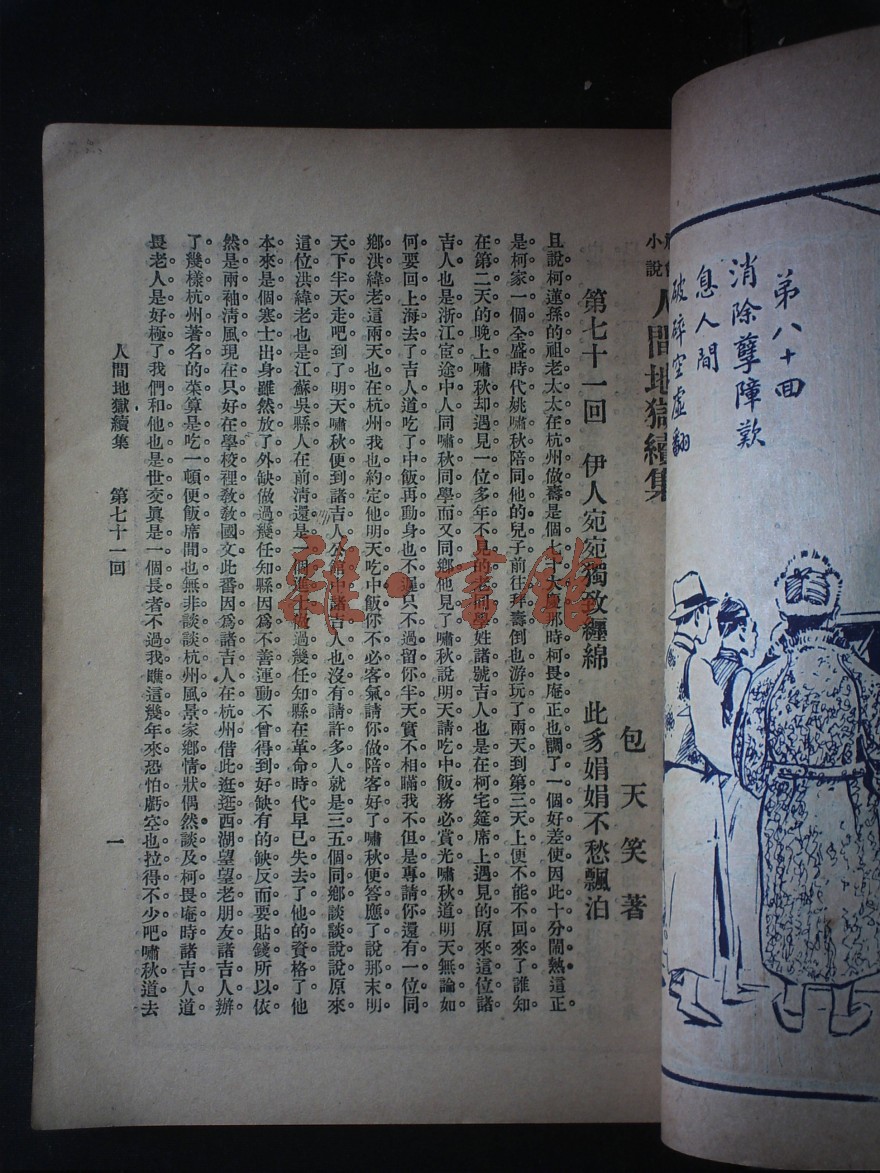 第八十回
消除孽障歎
息人間
破碎空虛翻
小說
人間地獄續集
包天笑著
第七十一回　伊人宛宛獨致纏綿　此豸娟娟不愁飄泊
且說柯蓮孫的祖老太太在杭州做壽是個七十大慶那時柯畏庵正也調了一個好差使因此十分鬧熱這正
是柯家一個全盛時代姚嘯秋陪同他的兒子前往拜壽倒也游玩了兩天到第三天上便不能不回來了誰知
在第二天的晚上嘯秋却遇見一位多年不見的老同學姓諸號吉人也是在柯宅筵席上遇見的原來這位諸
吉人也是浙江宦途中人同嘯秋同學而又同鄉他見了嘯秋說明天請吃中飯務必賞光嘯秋道明天無論如
何要回上海去了吉人道吃了中飯再動身也不遲只不過留你半天實不相瞞我不但是專請你還有一位同
鄉洪緯老這兩天也在杭州我也約定他明天吃中飯你不必客氣請你做陪客好了嘯秋便答應了說那末明
天下半天走吧到了明天嘯秋便到諸吉人公館中諸吉人也沒有請許多人就是三五個同鄉談談說說原來
這位洪緯老也是江蘇吳縣人在前清還是一個進士做過幾任知縣在革命時代早已失去了他的資格了他
本來是個寒士出身雖然放了外缺做過幾任知縣因爲不善運動不曾得到好缺有的缺反而要貼錢所以依
然是兩袖清風現在只好在學校裡敎敎國文此番因爲諸吉人在杭州借此逛逛西湖望望老朋友諸吉人辦
了幾樣杭州著名的菜算是吃一頓便飯席間也無非談談杭州風景家鄉情狀偶然談及柯畏庵時諸吉人道
畏老人是好極了我們和他也是世交眞是一個長者不過我瞧這幾年來恐怕虧空也拉得不少吧嘯秋道去
人間地獄續集　第七十一回　一
雜·書館